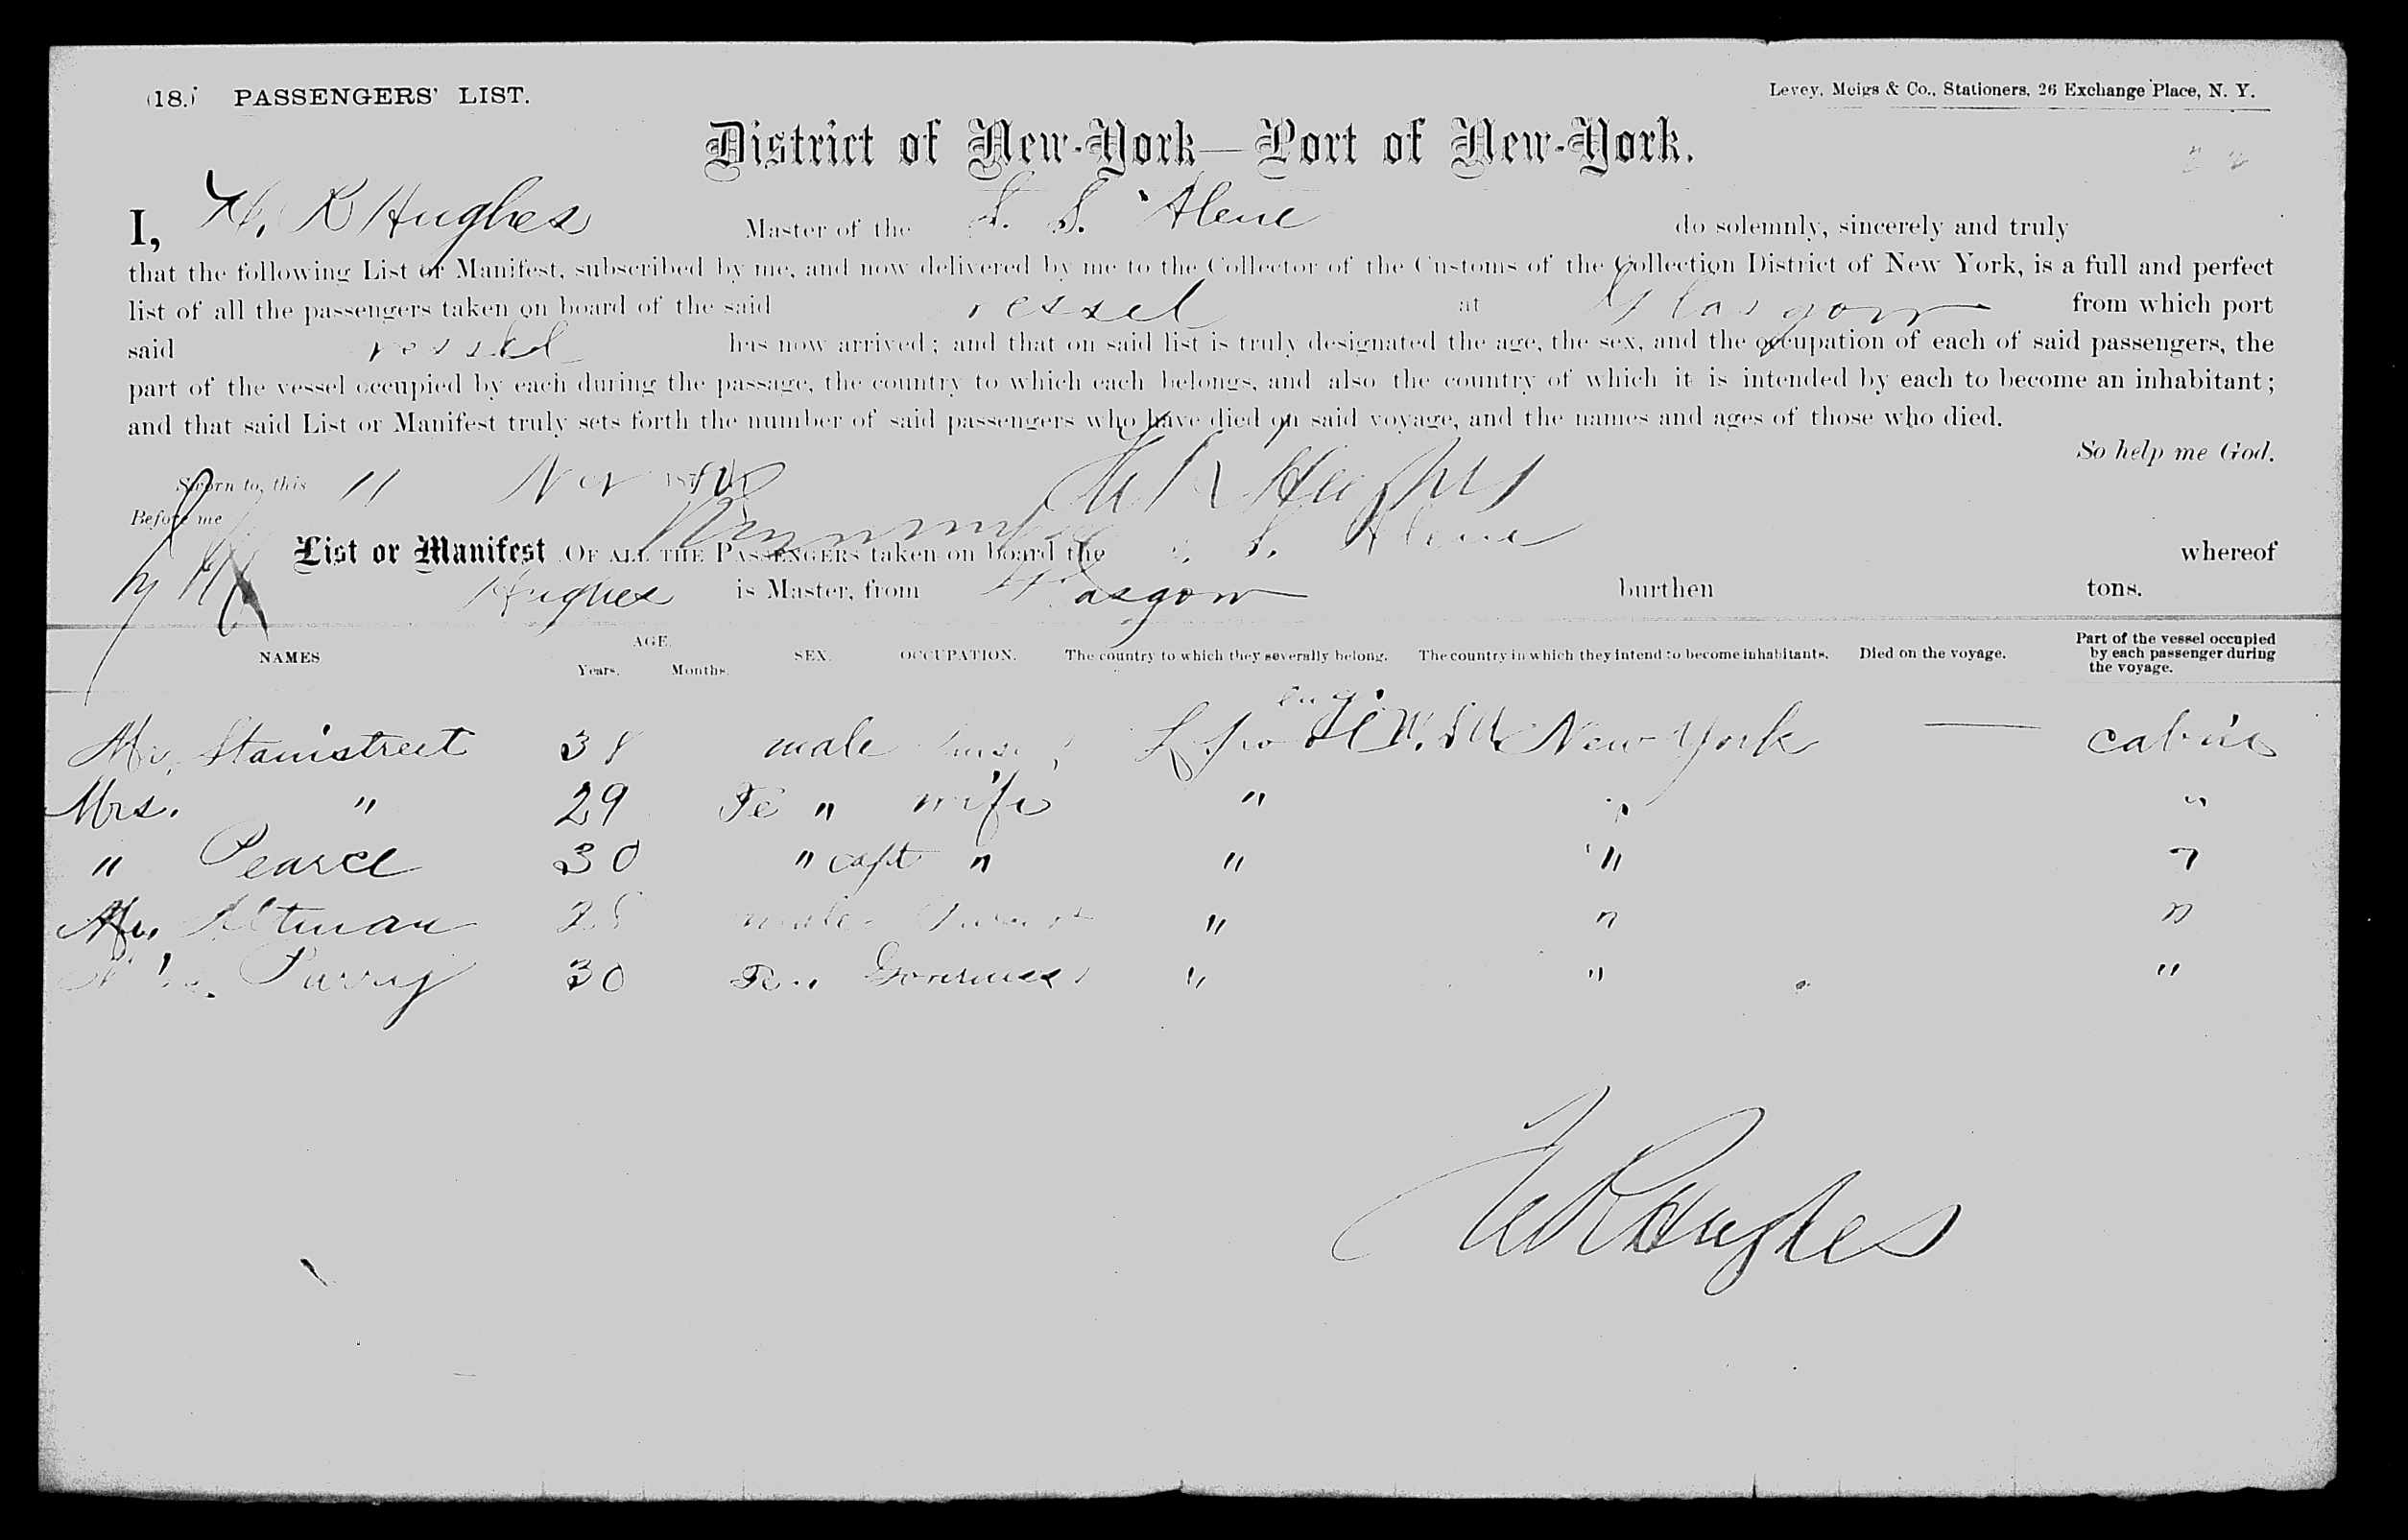 (18.) PASSENGERS' LIST.
Levey, Meigs & Co., Stationers, 26 Exchange Place, N. Y.
District of New-York—Port of New-York.
I, R Hughes Master of the S. S. Alene do solemnly, sincerely and truly
that the following List or Manifest, subscribed by me, and now delivered by me to the Collector of the Customs of the Collection District of New York, is a full and perfect
list of all the passengers taken on board of the said vessel at Glasgow from which port
said vessel has now arrived; and that on said list is truly designated the age, the sex, and the occupation of each of said passengers, the
part of the vessel occupied by each during the passage, the country to which each belongs, and also the country of which it is intended by each to become an inhabitant;
and that said List or Manifest truly sets forth the number of said passengers who have died on said voyage, and the names and ages of those who died.
So help me God.
Sworn to, this 11 Nov R Hughes
Before me
List or Manifest OF ALL THE PASSENGERS taken on board the S. Alene whereof
Hughes is Master, from Glasgow burthen tons.
NAMES AGE. Years. Months. SEX. OCCUPATION. The country to which they severally belong. The country in which they intend to become inhabitants. Died on the voyage. Part of the vessel occupied by each passenger during the voyage.
Mr. Stanistreet 38 male New York — cabin
Mrs. " 29 Fe " wife " " "
" Pearce 30 " capt " " " "
Mr. Altman 28 male " " "
Purvy 30 Fe " Governess " " "
R Hughes